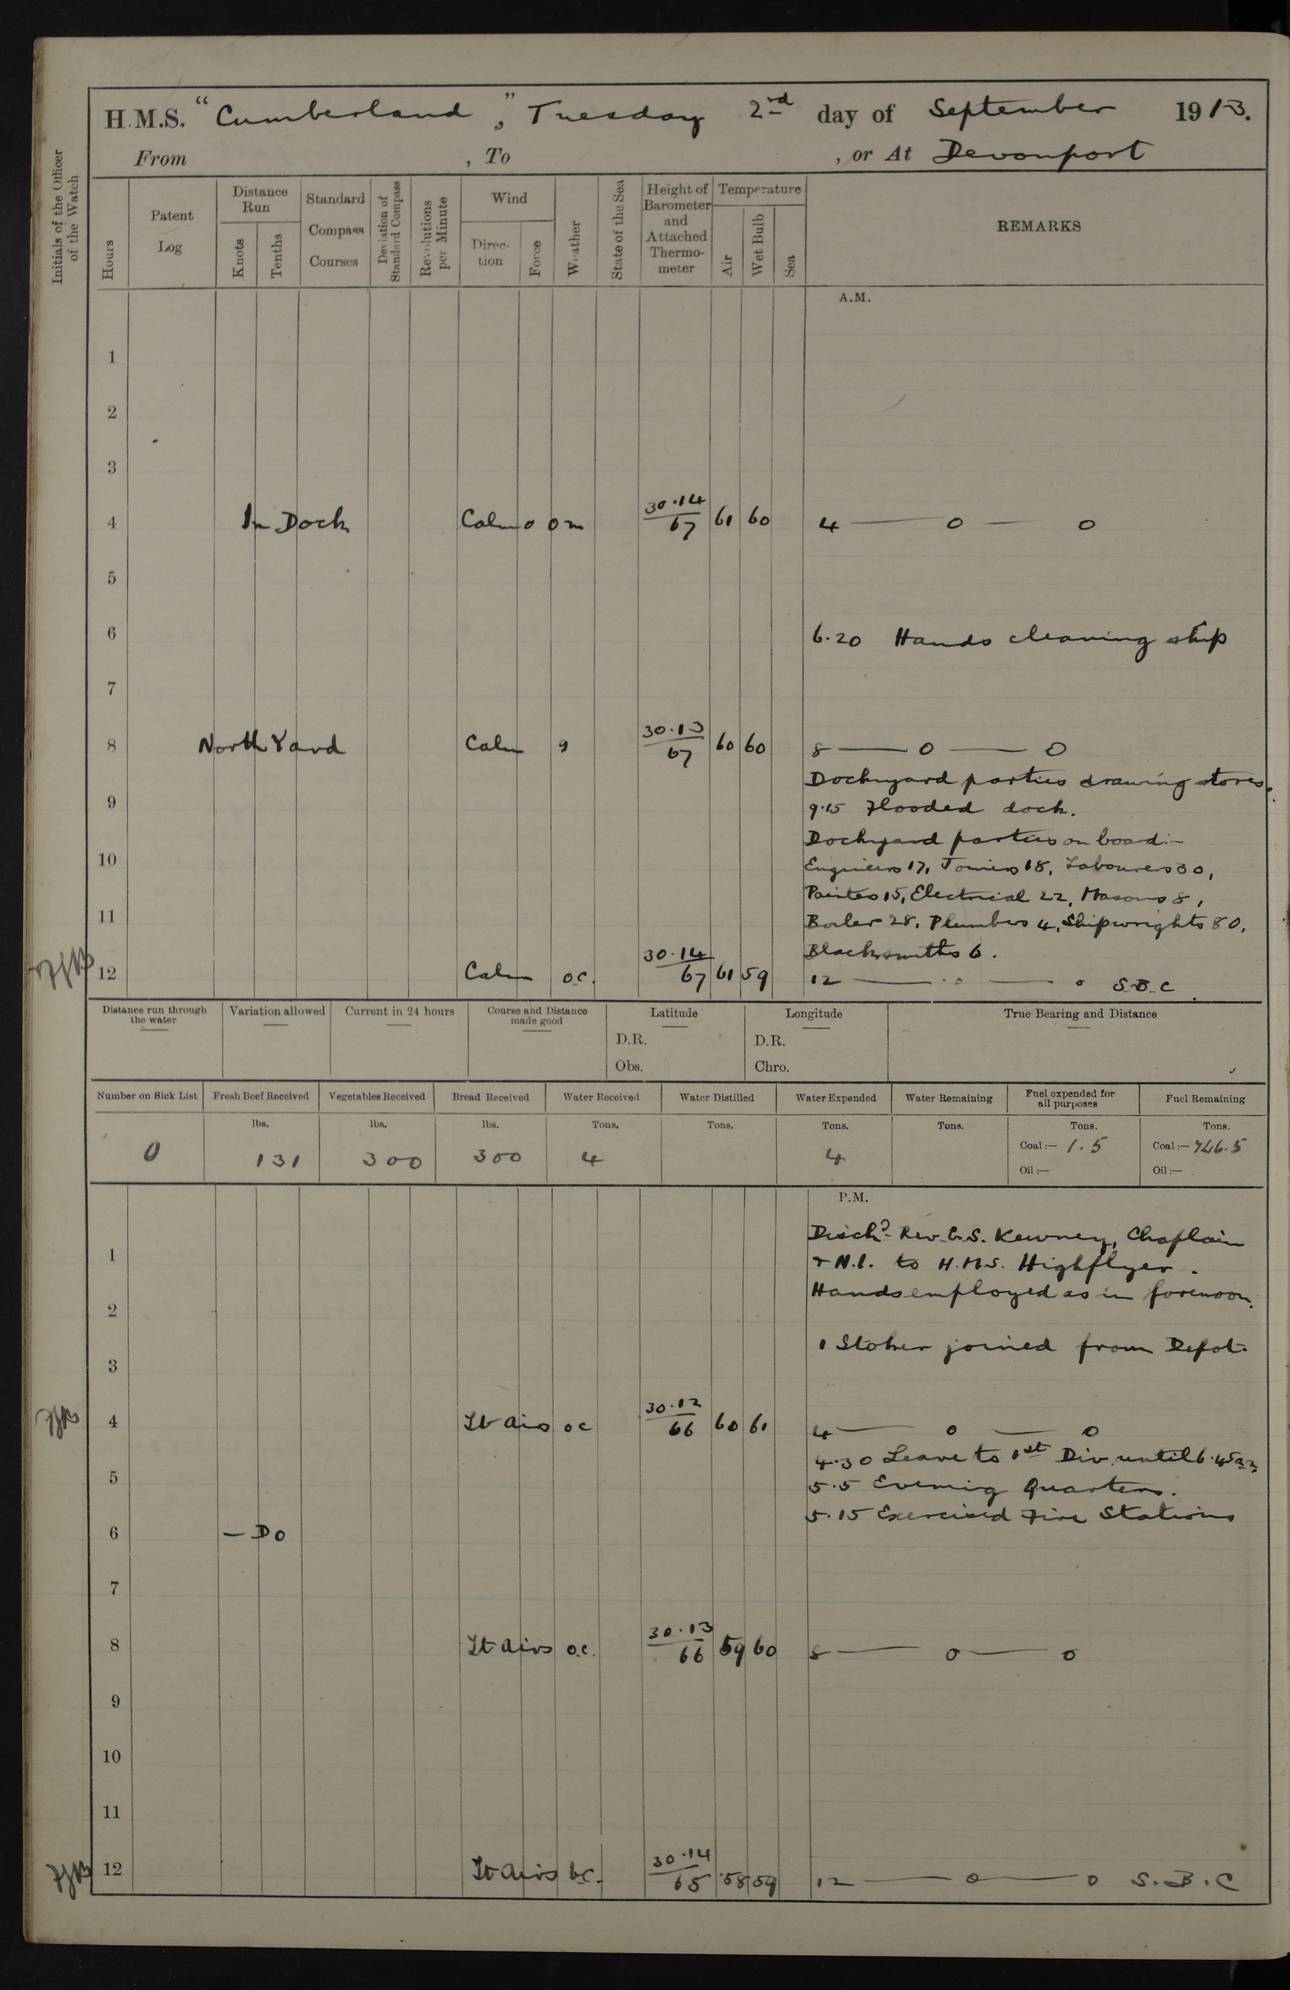 H.M.S. "Cumberland", Tuesday 2nd day of September 1913.
From , To , or At Devonport
Initials of the Officer of the Watch
Hours
Patent Log
Distance Run
Knots
Tenths
Standard Compass Courses
Deviation of Standard Compass
Revolutions per Minute
Wind
Direc-tion
Force
Weather
State of the Sea
Height of Barometer and Attached Thermo-meter
Temperature
Air
Wet Bulb
Sea
REMARKS
A.M.
1
2
3
4 In Dock Calm 0 om 30.14/67 61 60 4 — 0 — 0
5
6 6.20 Hands cleaning ship
7
8 North Yard Calm g 30.13/67 60 60 8 — 0 — 0
Dockyard parties drawing stores.
9 9.15 Flooded dock.
Dockyard parties on board:-
10 Engineers 17, Joiners 18, Labourers 30,
Painters 15, Electrical 22, Masons 8,
11 Boiler 28, Plumbers 4, Shipwrights 80,
Blacksmiths 6.
12 Calm o.c. 30.14/67 61 59 12 — 0 — 0 S.B.C
Distance run through the water
Variation allowed
Current in 24 hours
Course and Distance made good
Latitude
D.R.
Obs.
Longitude
D.R.
Chro.
True Bearing and Distance
Number on Sick List
Fresh Beef Received
Vegetables Received
Bread Received
Water Received
Water Distilled
Water Expended
Water Remaining
Fuel expended for all purposes
Fuel Remaining
lbs. lbs. lbs. Tons. Tons. Tons. Tons. Tons. Tons.
0 131 300 300 4 4 Coal:— 1.5 Coal:— 746.5
Oil:— Oil:—
P.M.
Dischd Rev. E.S. Kewney, Chaplain
1 & N.I. to H.M.S. Highflyer.
Hands employed as in forenoon.
2
1 Stoker joined from Depot.
3
4 Lt airs oc 30.12/66 60 61 4 — 0 — 0
4.30 Leave to 1st Div. until 6.45 a.m.
5 5.5 Evening Quarters.
5.15 Exercised Fire Stations
6 — Do
7
8 Lt airs o.c. 30.13/66 59 60 8 — 0 — 0
9
10
11
12 Lt airs bc. 30.14/65 58 59 12 — 0 — 0 S.B.C